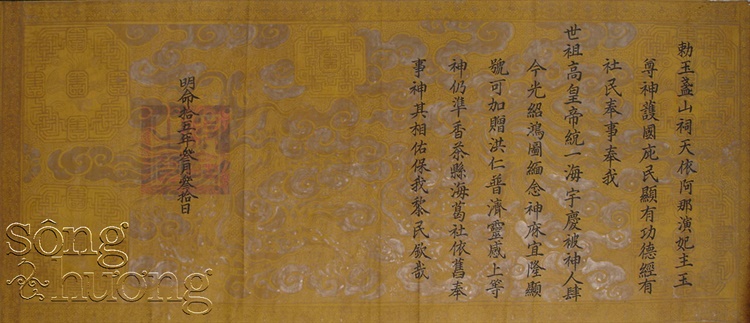 勅玉盞山祠天依阿那演妃主玉
尊神護國施民顯有功德經有
社民奉事奉我
世祖高皇帝統一海宇慶被神人肆
今光紹鴻圖緬念神庥宜隆顯
號可加贈洪仁普濟靈感上等
神仍準香茶縣海葛社依舊奉
事神其相佑保我黎民欽哉
明命拾五年參月參拾日
sông
hương